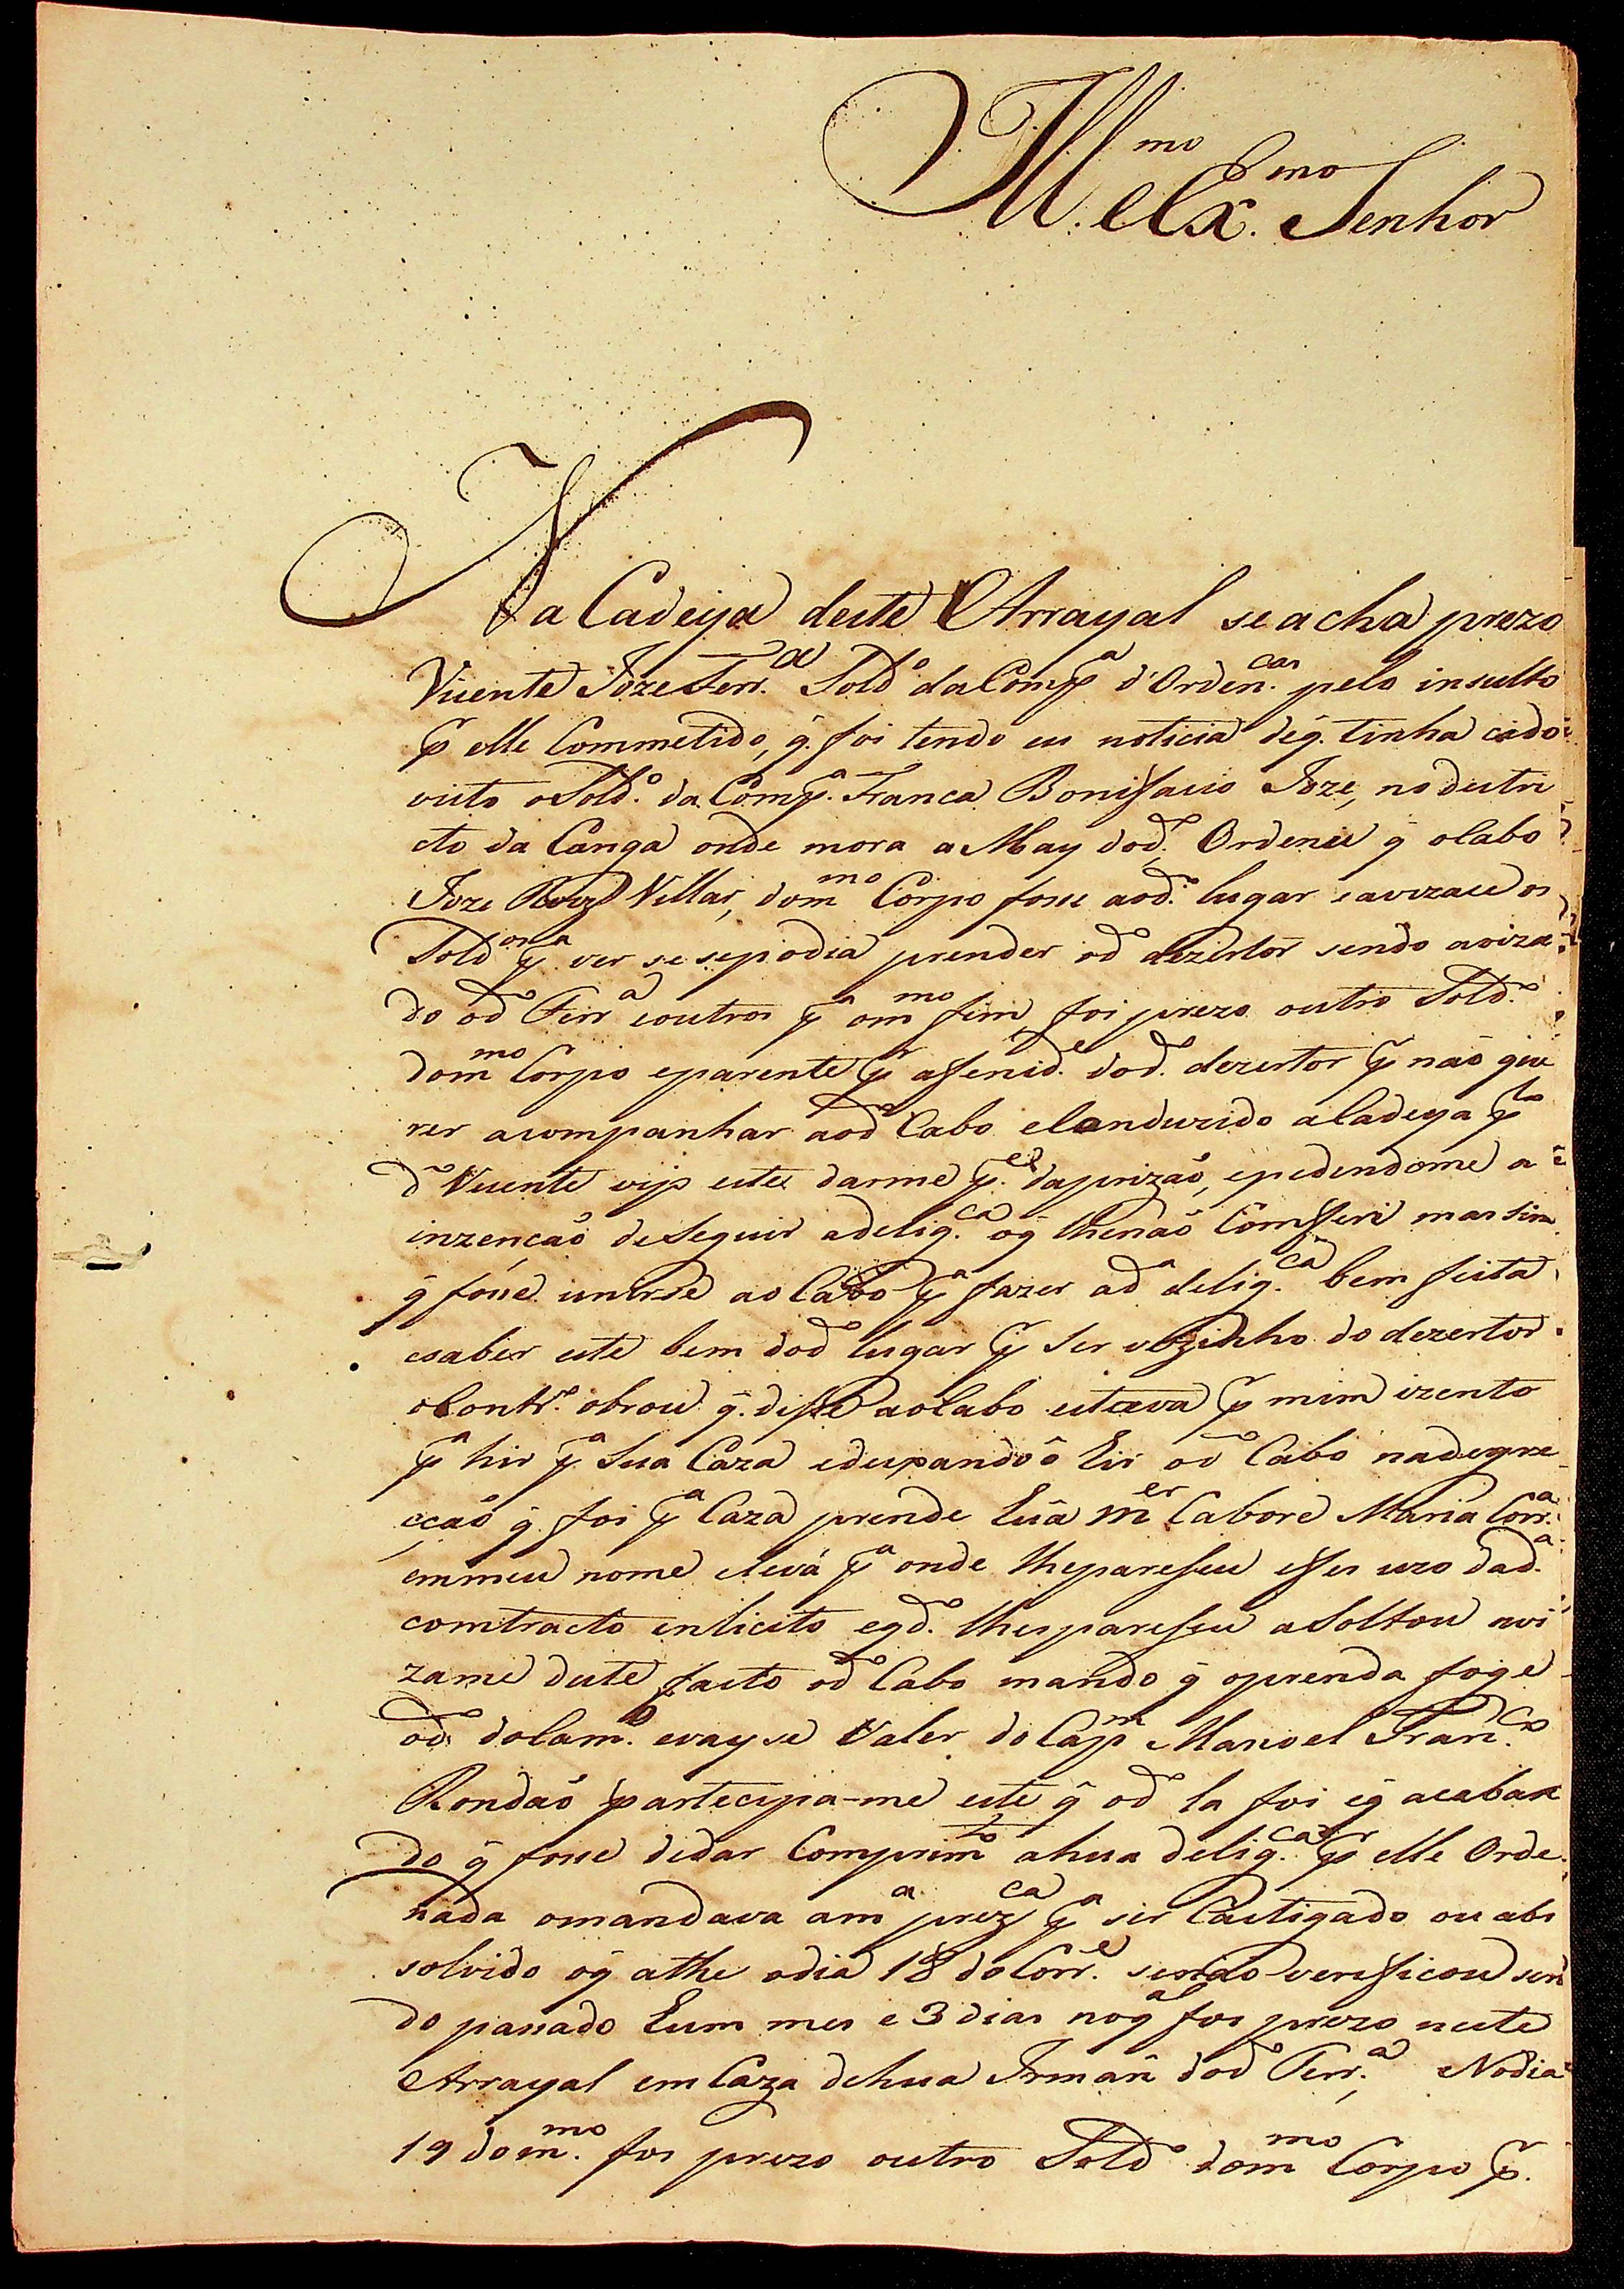 Ill.mo eEx.mo Senhor
Na Cadeya deste Arrayal seacha prezo
Vicente Joze Ferr.a Sold.o daComp.a d'Orden.cas pelo insulto
p elle Commetido, q̃. foi tendo eu noticia deq̃. tinha cido
visto oSold.o da Comp.a Franca Bonifacio Joze, nodestri
cto da Canga onde mora a May dod.o Ordenei q̃ oCabo
Joze Roiz Villar, dom.mo Corpo fosse aod.o lugar eavizace os
Sold.os p.a ver sesepodia prender od.o dezertor sendo aviza
do od.o Ferr.a eoutros p.a om.mo fim, foi prezo outro Sold.o
dom.mo Corpo eparente p.r afenid.e dod.o dezertor p.r não que
rer acompanhar aod.o Cabo eConduzido aCadeya p.lo
d.o Vicente veyo este darme p.e daprizaõ, epedendome a
inzencaõ deSeguir adelig.ca oq̃ lhenaõ Comfferi mas sim
q̃ fosse unirse ao Cabo p.a fazer ad.a delig.ca bem feita
esaber este bem dod.o lugar p.r Ser vezinho do dezertor
oContr.o obrou q̃. disse aoCabo estava p.r mim izento
p.a hir p.a Sua Caza
q̃ foi p.a Caza prende hũa m.er Cabore Maria Corr.a
emmeu nome eleva p.a onde lheparesseu efes uzo dad.a
comtracto enlicito eqd.o lhesparesseu aSoltou avi
zame deste facto od.o Cabo mando q̃ oprenda foge
od.o dolam.to evayse Valer do Cap.m Manoel Fran.co
Rondaõ partecipa-me este q̃ od.o la foi eq̃ acaban
do q̃ fosse dedar Comprim.to ahua delig.ca p.r elle Orde
nada omandava am.a prez.ca p.a ser Castigado ou abs
solvido oq̃ athe odia 18 doCorr.e senão verificou sen
do passado hum mes e 3 dias noq.al foi prezo neste
Arrayal em Caza dehua Irmaã dod.o Ferr.a, Nodia
19 dom.mo foi prezo outro Sold.o dom.mo Corpo p.r